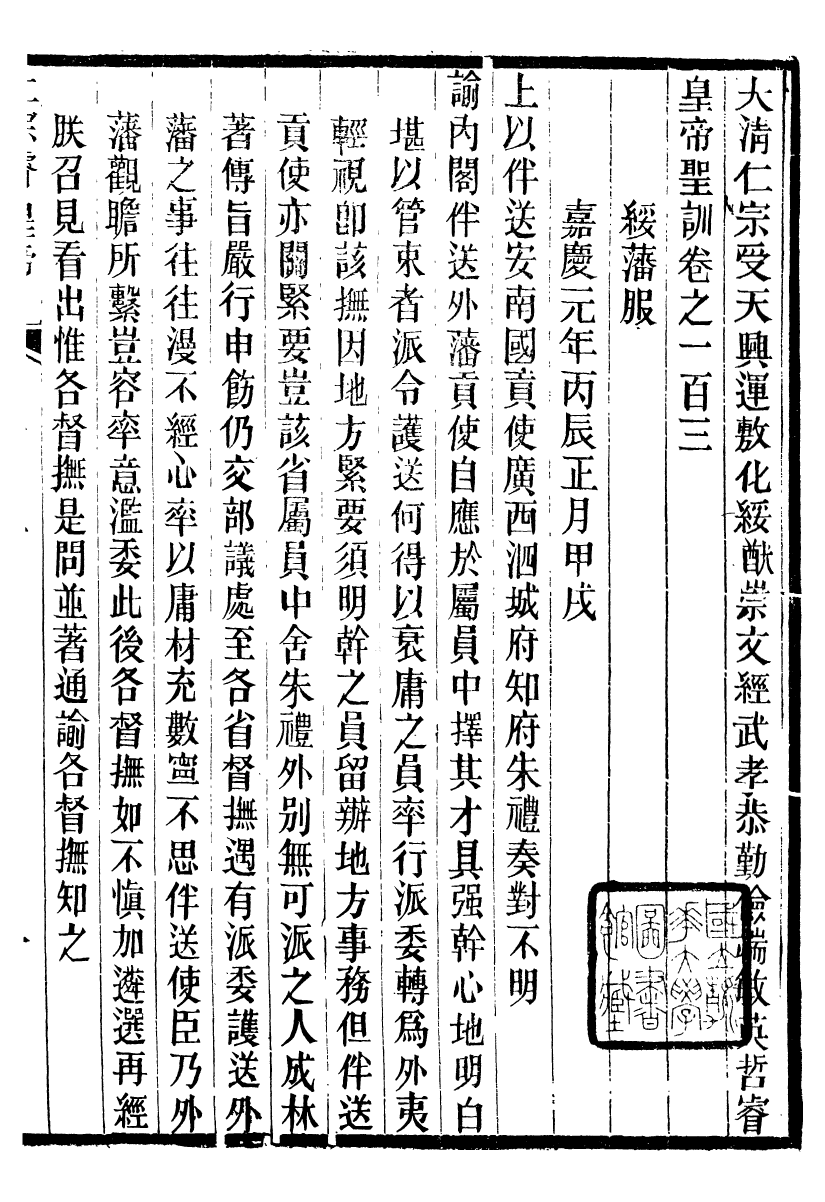 大清仁宗受天興運敷化綏猷崇文經武孝恭勤儉端敏英哲睿
皇帝聖訓卷之一百三
綏藩服
嘉慶元年丙辰正月甲戌
上以伴送安南國貢使廣西泗城府知府朱禮奏對不明
諭內閣伴送外藩貢使自應於屬員中擇其才具强幹心地明白
堪以管束者派令護送何得以衰庸之員率行派委轉爲外夷
輕視卽該撫因地方緊要須明幹之員留辦地方事務但伴送
貢使亦關緊要豈該省屬員中舍朱禮外別無可派之人成林
著傳旨嚴行申飭仍交部議處至各省督撫遇有派委護送外
藩之事往往漫不經心率以庸材充數寧不思伴送使臣乃外
藩觀瞻所繫豈容率意濫委此後各督撫如不愼加遴選再經
朕召見看出惟各督撫是問並著通諭各督撫知之
仁宗睿皇帝